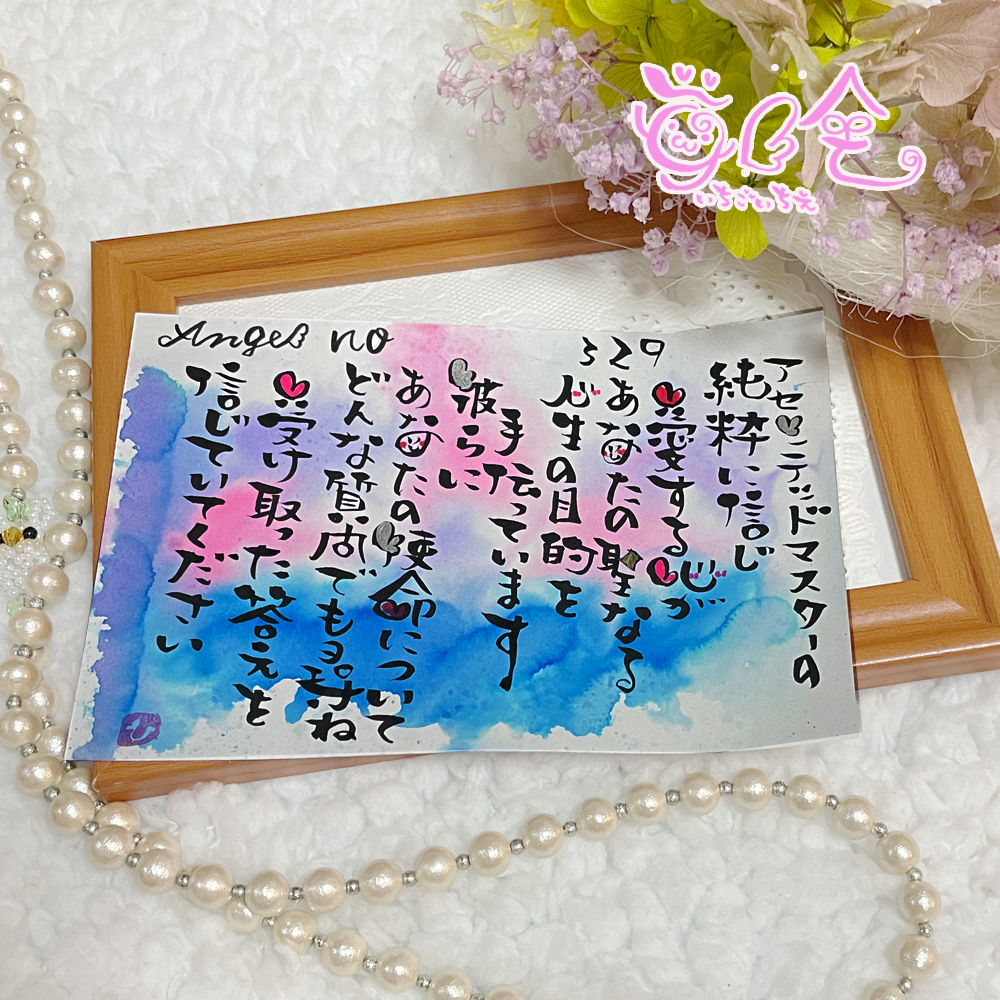 いちごいちえ
Angel no 329
アセンテッドマスターの
純粋に信じ
愛する心が
あなたの聖なる
人生の目的を
手伝っています
彼らに
あなたの使命について
どんな質問でも尋ね
受け取った答えを
信じていてください